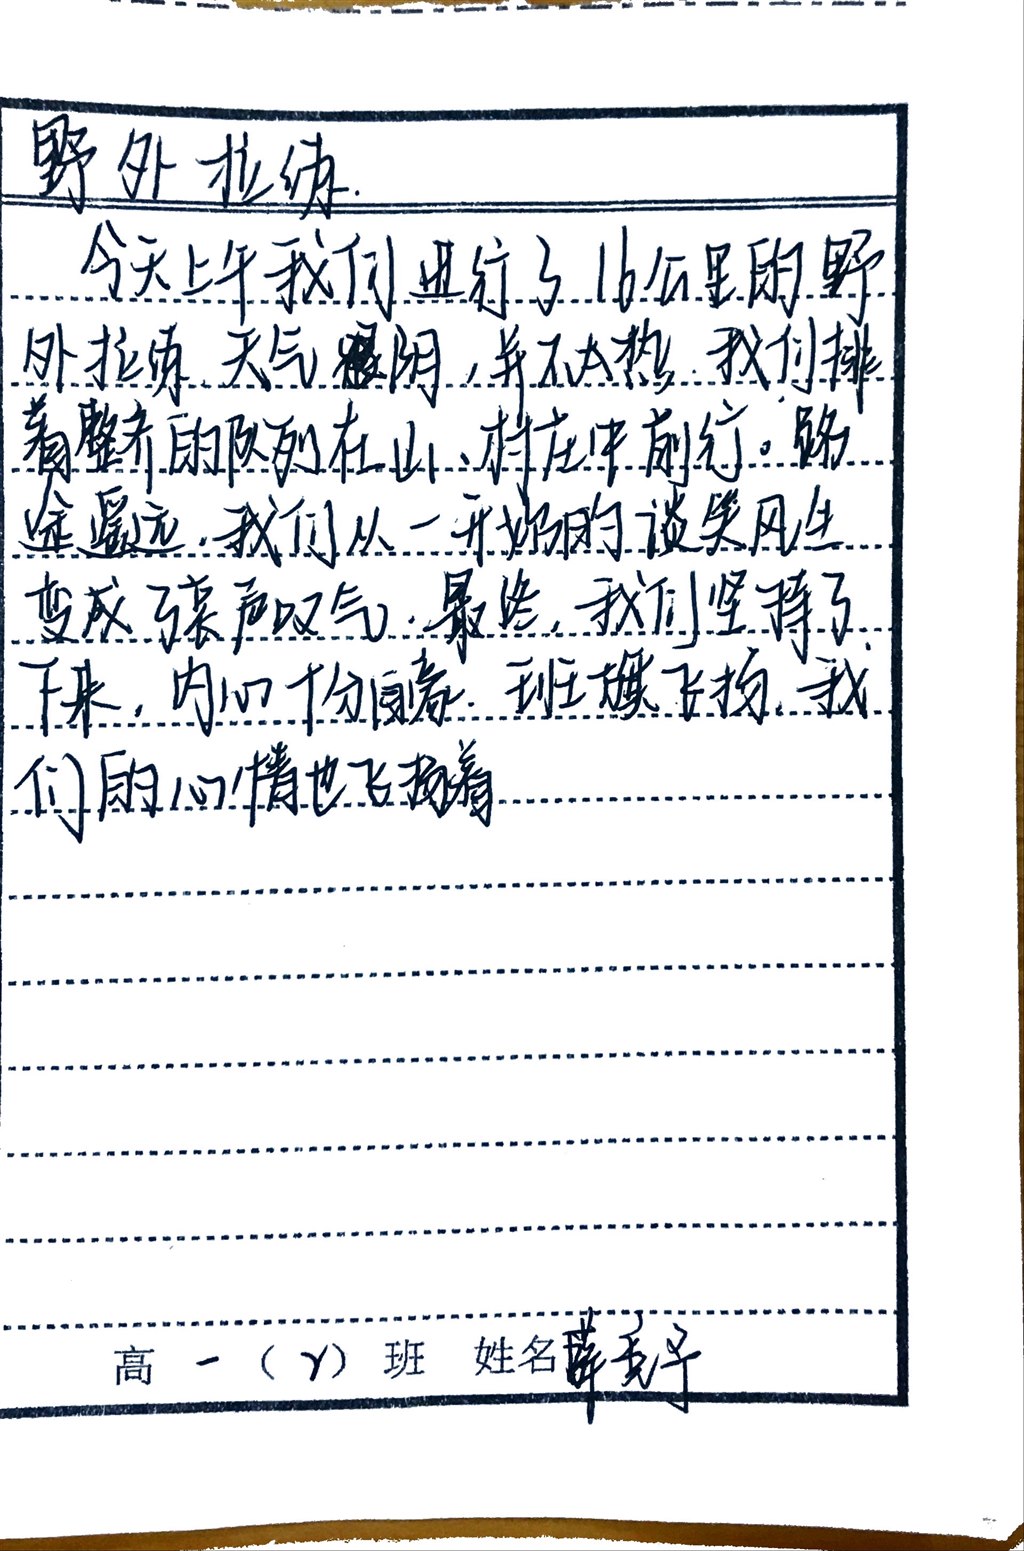 野外拉练.
今天上午我们进行了16公里的野
外拉练.天气很阴,并不太热.我们排
着整齐的队列在山、村庄中前行。路
途遥远.我们从一开始的谈笑风生
变成了哀声叹气.最终,我们坚持了
下来,内心十分自豪.班旗飞扬.我
们的心情也飞扬着
高一(2)班 姓名薛